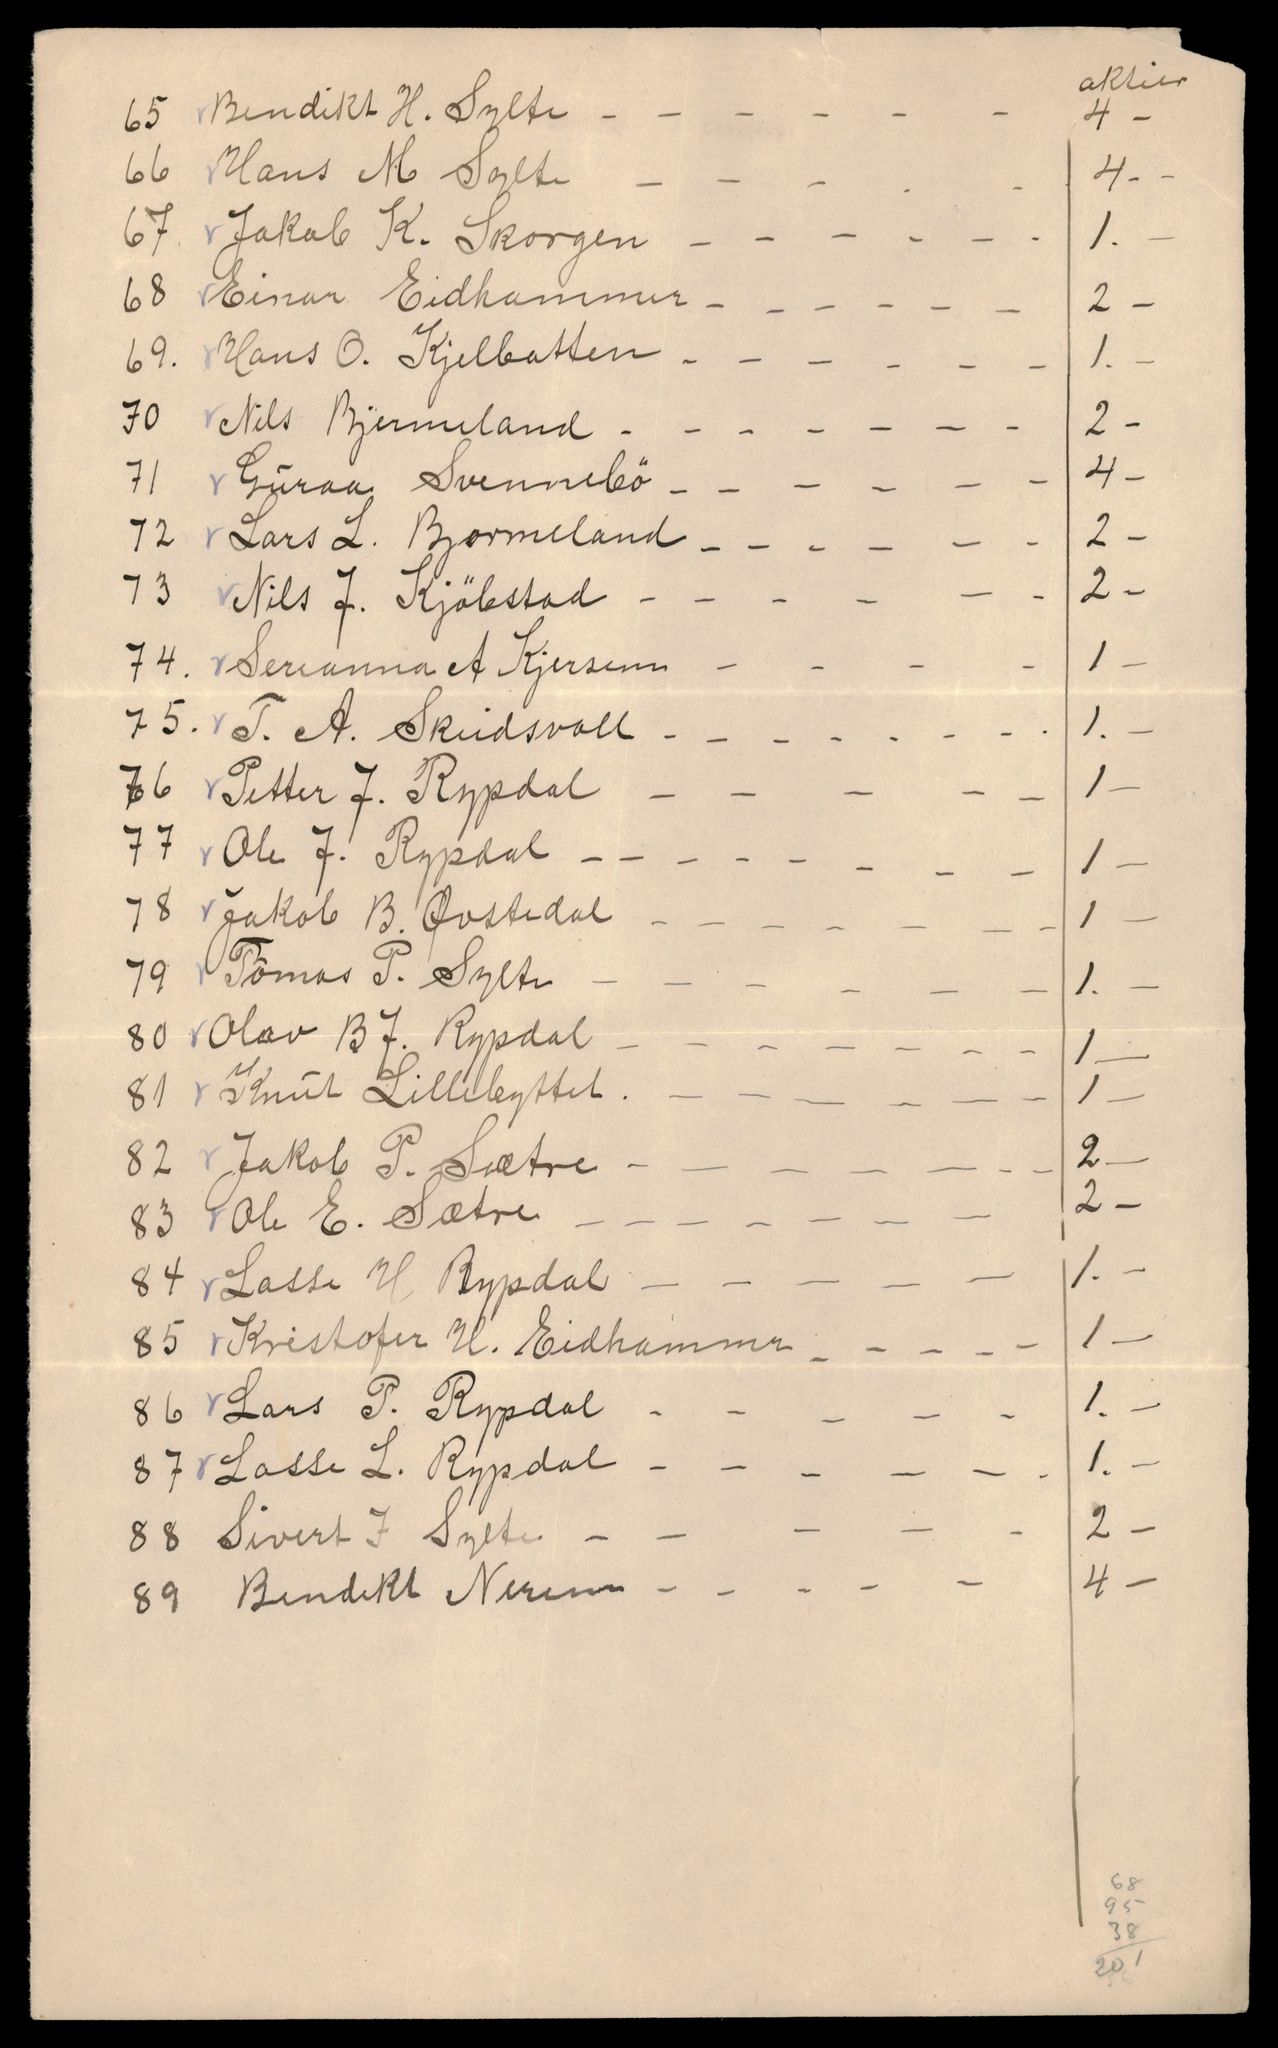 aktier
65 Bendikt H. Sylte - - - - - - - 4 -
66 Hans M Sylte - - - - - - 4 - -
67. Jakob K. Skorgen - - - - - - - 1. -
68 Einar Eidhammer - - - - - - 2 -
69. Hans O. Kjelbotten - - - - - - 1. -
70 Nils Bjermeland - - - - - - - 2 -
71 Guraa Svennebö - - - - - - 4 -
72 Lars L. Bjormeland - - - - - - 2 -
73 Nils J. Kjöbstad - - - - - - 2 -
74. Serianna A Kjersem - - - - 1 -
75. T. A. Skeidsvoll - - - - - - - - 1. -
76 Petter J. Rypdal - - - - - - 1 -
77 Ole J. Rypdal - - - - - - - - 1 -
78 Jakob B. Øvstedal - - - - - - - - 1 -
79 Tomas P. Sylte - - - - - - - 1. -
80 Olav B J. Rypdal - - - - - - - - - 1 -
81 Knut Lillebyttet. - - - - - - - 1 -
82 Jakob P. Sætre - - - - - - - - 2 -
83 Ole E. Sætre - - - - - - - 2 -
84 Lasse H. Rypdal - - - - - 1. -
85 Kristofer H. Eidhammer - - - - - 1 -
86 Lars P. Rypdal - - - - - 1. -
87 Lasse L. Rypdal - - - - - - 1. -
88 Sivert J Sylte - - - - - 2 -
89 Bendikt Nerem - - - - - 4 -
68
95
38
201